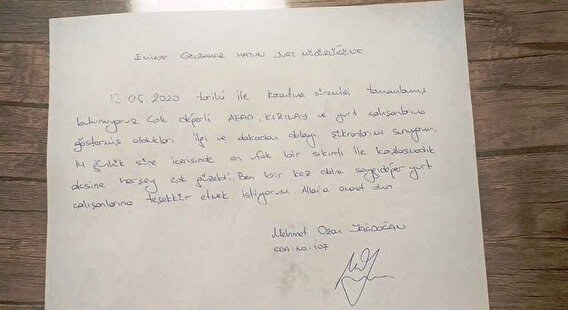 EMİNE GÜLBAHAR HATUN YURT MÜDÜRLÜĞÜNE
13.05.2020 tarihi ile karantina süremizi tamamlamış
bulunuyoruz. Çok değerli AFAD, KIZILAY ve yurt çalışanlarına
göstermiş oldukları ilgi ve alakadan dolayı şükranlarımı sunuyorum.
14 günlük süre içerisinde en ufak bir sıkıntı ile karşılaşmadık
aksine herşey çok güzeldi. Ben bir kez daha saygıdeğer yurt
çalışanlarına teşekkür etmek istiyorum. Allah'a emanet olun.
Mehmet Ozan
ODA.NO: 107